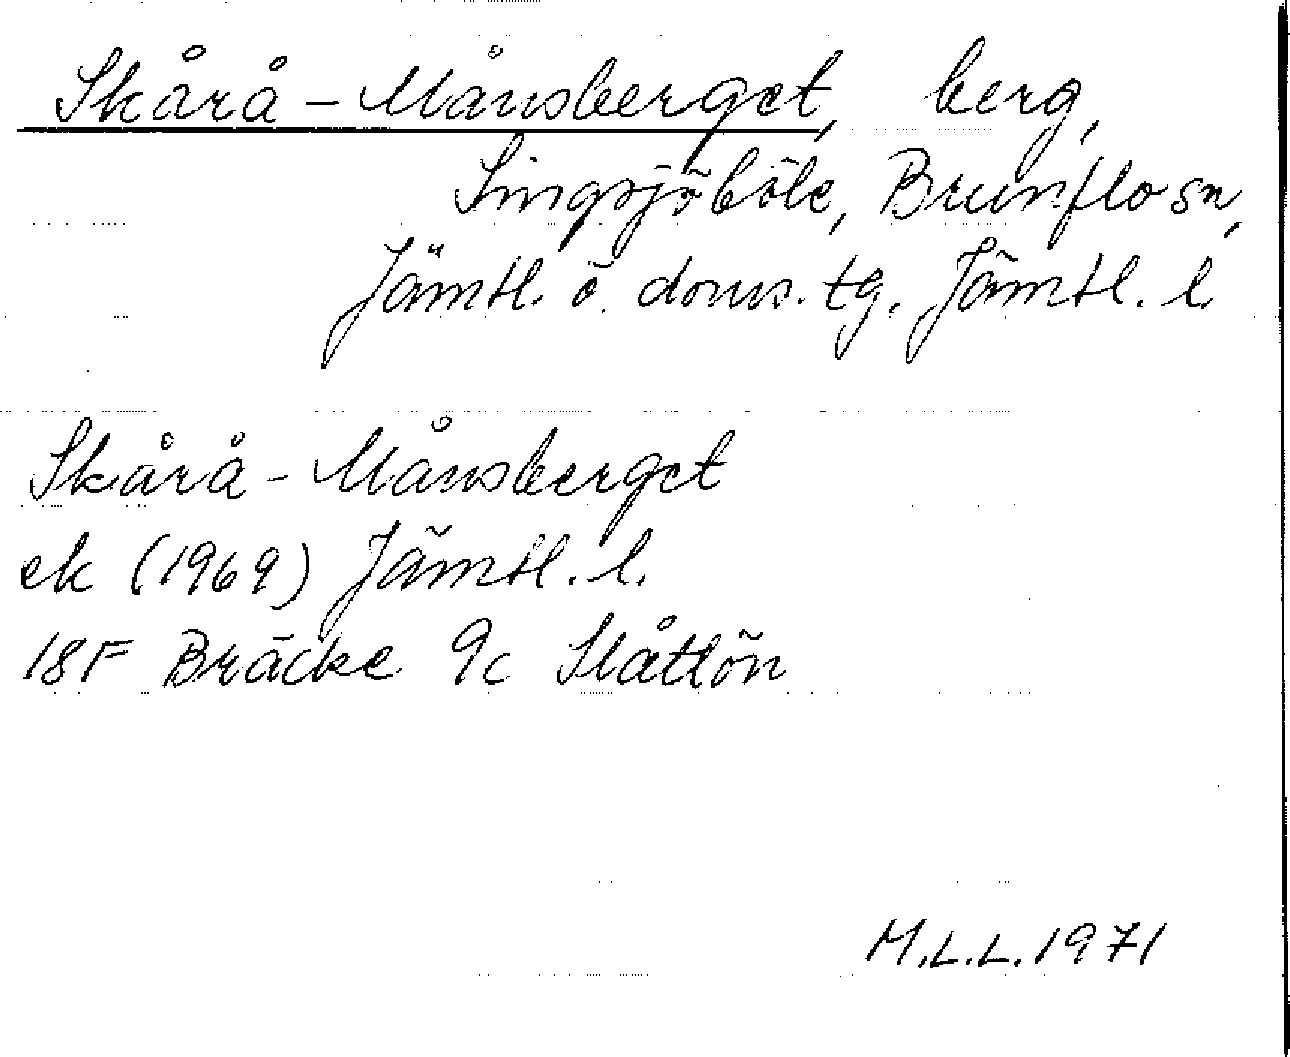 Skårå-Månsberget, berg,
Singsjöböle, Brunflo sn,
Jämtl. ö. doms. tg. Jämtl. l
Skårå-Månsberget
ek (1969) Jämtl. l.
18F Bräcke 9c Slåttön
M.L.L. 1971